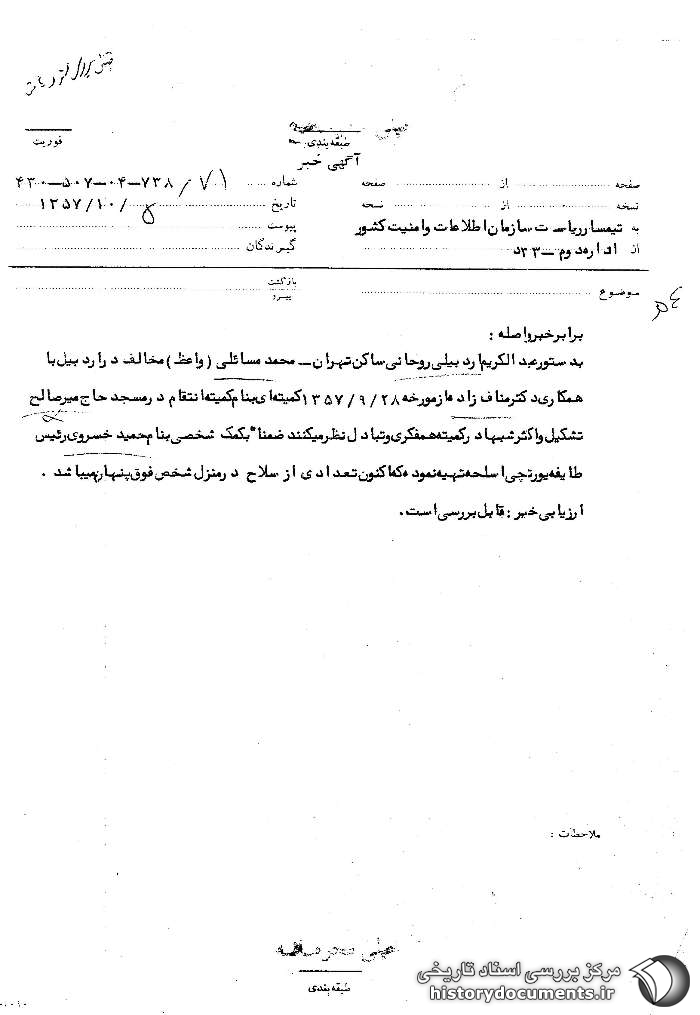 طبقه‌بندی
فوریت
آگهی خبر
صفحه از صفحه شماره ۷۱/۷۳۸-۰۴-۵۰۷-۴۳۰
نسخه از نسخه تاریخ ۵/۱۰/۱۳۵۷
به تیمسار ریاست سازمان اطلاعات و امنیت کشور پیوست
از اداره دوم - ۳۳د گیرندگان
موضوع بازگشت پیرو
برابر خبر واصله :
بدستور عبدالکریم اردبیلی روحانی ساکن تهران - محمد مسائلی (واعظ) مخالف در اردبیل با
همکاری دکتر مناف زاده از مورخه ۱۳۵۷/۹/۲۸ کمیته‌ای بنام کمیته انتقام در مسجد حاج میرصالح
تشکیل و اکثر شبها در کمیته همفکری و تبادل نظر میکنند ضمنا" بکمک شخصی بنام حمید خسروی رئیس
طایفه یورتچی اسلحه تهیه نموده که اکنون تعدادی از سلاح در منزل شخص فوق پنهان میباشد .
ارزیابی خبر : قابل بررسی است .
ملاحظات :
خیلی محرمانه
طبقه‌بندی
مرکز بررسی اسناد تاریخی
historydocuments.ir